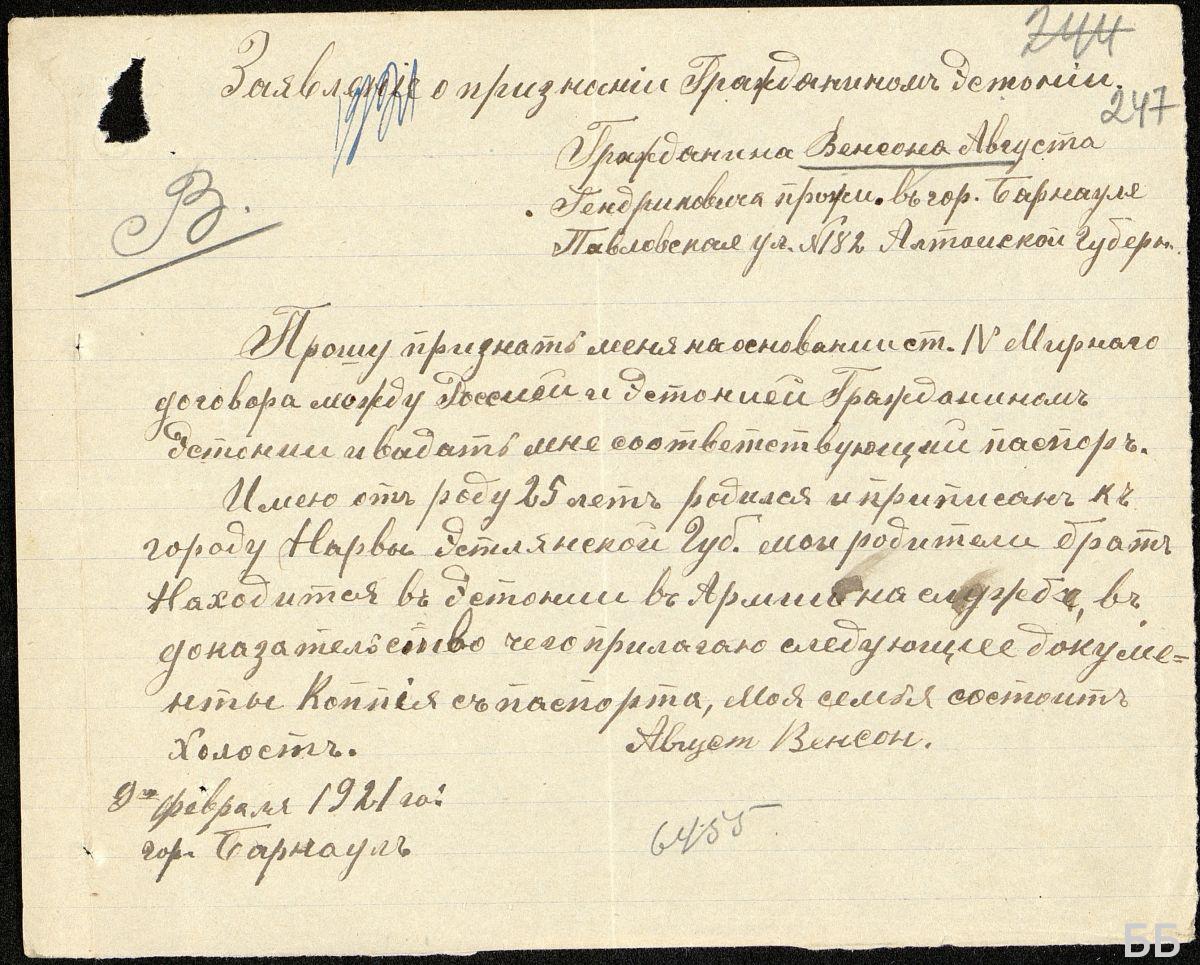 244
Заявленіе о признаніи Гражданиномъ Эстоніи.
247
Гражданина Венсона Августа
В.
Гендриковича прожи. въ гор. Барнауле
Павловская ул. №182 Алтайской Губерн.
Прошу признать меня на основании ст. IV Мирнаго
договора между Россией и Эстонией Гражданином
Эстонии и вадать мне соответствующий паспоръ.
Имею отъ роду 25 летъ родился и приписанъ къ
городу Нарвы Эстлянской Губ. мои родители братъ
Находится въ Эстонии въ Армии на службе, въ
доказательство чего прилагаю следующее докуме=
нты Коппія съ паспорта, моя семья состоитъ
Холостъ.
Август Венсон.
9го февраля 1921 го:
гор. Барнаулъ
6455
ББ